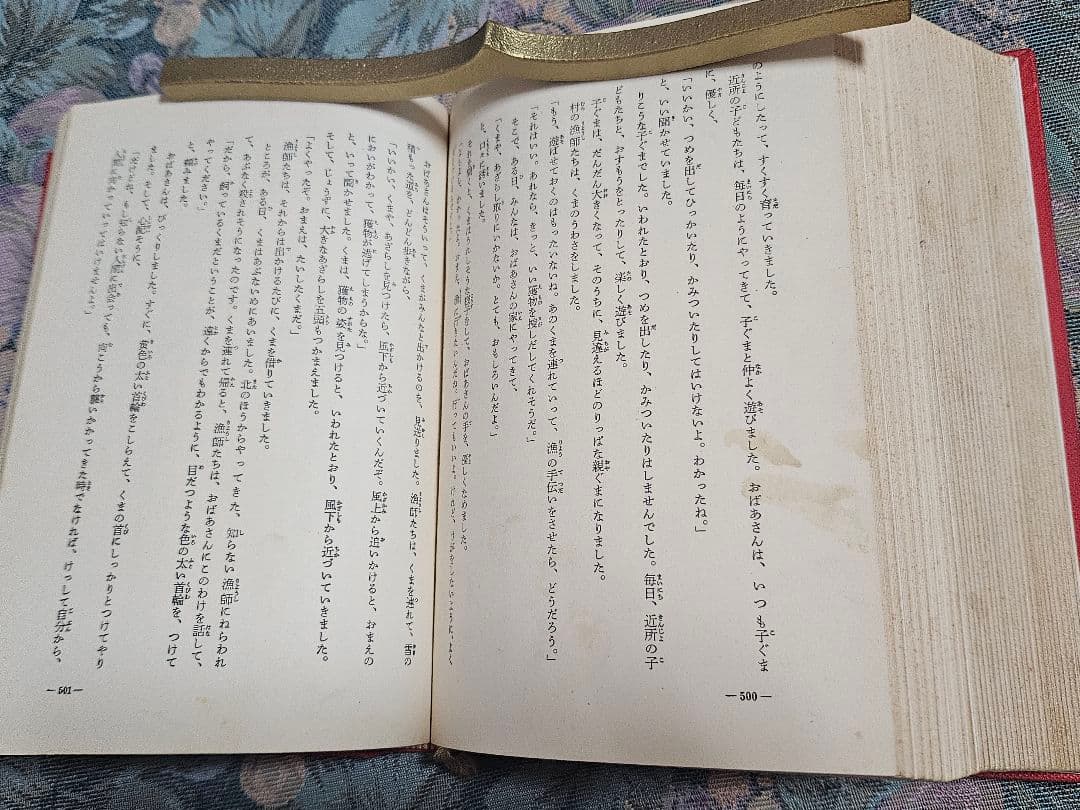 のようにしたって、すくすく育っていきました。
近所の子どもたちは、毎日のようにやってきて、子ぐまと仲よく遊びました。おばあさんは、いつも子ぐま
に、優しく、
「いいかい、つめを出してひっかいたり、かみついたりしてはいけないよ。わかったね。」
と、いい聞かせていました。
りこうな子ぐまでした。いわれたとおり、つめを出したり、かみついたりはしませんでした。毎日、近所の子
どもたちと、おすもうをとったりして、楽しく遊びました。
子ぐまは、だんだん大きくなって、そのうちに、見違えるほどのりっぱな親ぐまになりました。
村の漁師たちは、くまのうわさをしました。
「もう、遊ばせておくのはもったいないね。あのくまを連れていって、漁の手伝いをさせたら、どうだろう。」
「それはいい。あれなら、きっと、いい獲物を捜しだしてくれそうだ。」
そこで、ある日、みんなは、おばあさんの家にやってきて、
「くまや、あざらし取りにいかないか。とても、おもしろいんだよ。」
と、口々に誘いました。
それを聞くと、くまはうれしそうな様子をして、おばあさんの手を、優しくなめました。
―500―
おばあさんはそういって、くまがみんなと出かけるのを、見送りました。漁師たちは、くまを連れて、雪の
積もった道を、どんどん歩きながら、
「いいかい、くまや、あざらしを見つけたら、風下から近づいていくんだぞ。風上から追いかけると、おまえの
においがわかって、獲物が逃げてしまうからな。」
と、いって聞かせました。くまは、獲物の姿を見つけると、いわれたとおり、風下から近づいていきました。
そして、じょうずに、大きなあざらしを五頭もつかまえました。
「よくやったぞ。おまえは、たいしたくまだ。」
漁師たちは、それからは出かけるたびに、くまを借りていきました。
ところが、ある日、くまはあぶないめにあいました。北のほうからやってきた、知らない漁師にねらわれ
て、あぶなく殺されそうになったのです。くまを連れて帰ると、漁師たちは、おばあさんにこのわけを話して、
「だから、飼っているくまだということが、遠くからでもわかるように、目だつような色の太い首輪を、つけて
やってください。」
と、頼みました。
おばあさんは、びっくりしました。すぐに、黄色の太い首輪をこしらえて、くまの首にしっかりとつけてやり
ました。そして、心配そうに、
「だけどね、もし知らない人間に出会っても、向こうから襲いかかってきた時でなければ、けっして自分から、
人間に向かっていってはいけませんよ。」
―501―